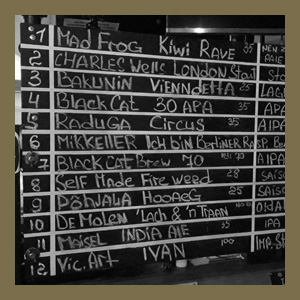 :1 MAD FROG KIWI RAVE 35 NEW Z
2 CHARLES Wells LONDON Stout PALE
3 BAKUNIN VIENNDETTA 25 LAG
4 BLACK CAT 30 APA 35 APA
5 RADUGA CIRCUS 35 IPA
6 MIKKELLER ICH bIN BERLINER RASP. BE
7 BLACK CAT BREW 70 70 AIPA
8 Self Made Fireweed 28 SAISO
9 PÖHJALA HOOAEG 25 SAISO
10 DE MOLEN 'Lach & 'n TRAAN
11 MAISEL INDIA ALE 35 IPA
12 Vic.ART IVAN 100 IMP.S